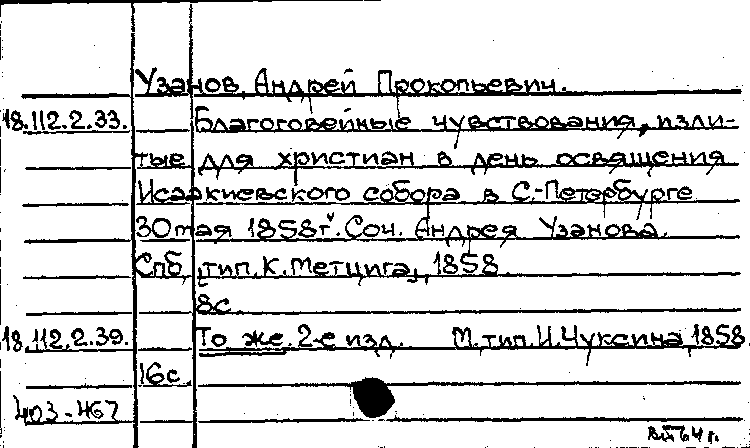 Узанов, Андрей Прокопьевич.
18.112.2.33. Благоговейные чувствования, изли-
тые для христиан в день освящения
Исаакиевского собора в С.-Петербурге
30 мая 1858 г. Соч. Андрея Узанова.
Спб, тип. К. Метцига, 1858.
8с.
18.112.2.39. То же. 2-е изд. М. тип. И. Чуксина, 1858.
16с.
403-467